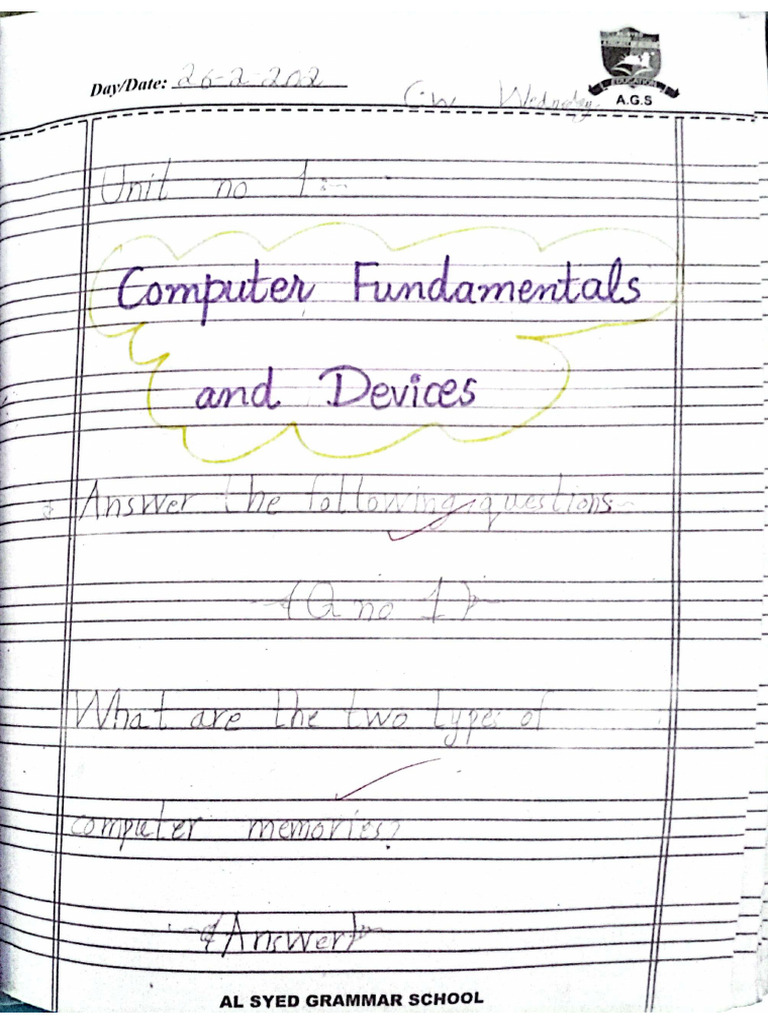 Day/Date: 26-2-202
C.W Wednesday
EDUCATION
A.G.S
Unit no 1:-
Computer Fundamentals
and Devices
Answer the following questions:-
(Q no 1)
What are the two types of
computer memories?
(Answer)
AL SYED GRAMMAR SCHOOL